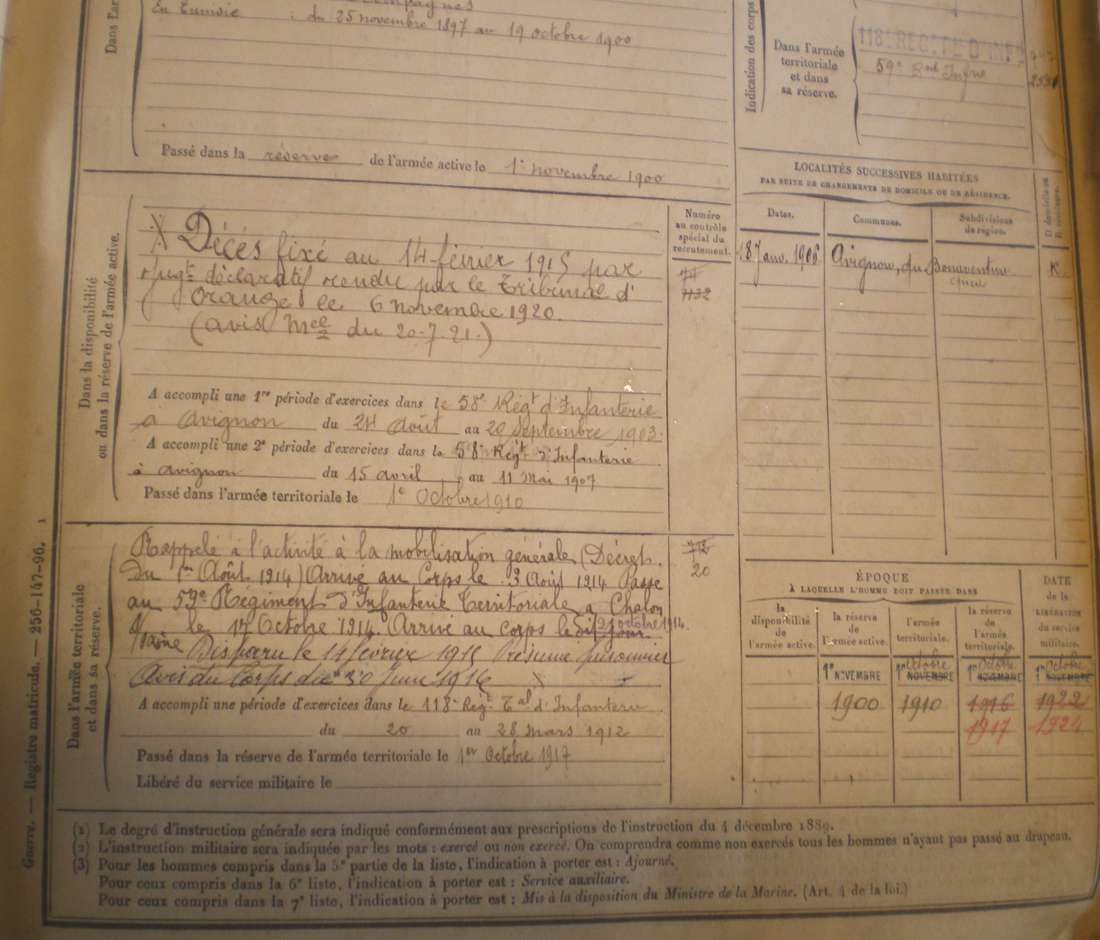 Campagnes
En Tunisie : du 25 novembre 1897 au 19 octobre 1900
Passé dans la réserve de l'armée active le 1er novembre 1900
Indication des corps
Dans l'armée
territoriale
et dans
sa réserve.
118e REGt Tal D'INFie
59e
Dans la disponibilité
ou dans la réserve de l'armée active.
Décès fixé au 14 février 1915 par
jugt déclaratif rendu par le Tribunal d'
Orange le 6 novembre 1920.
(avis Mel du 20-7-21.)
A accompli une 1re période d'exercices dans le 58e Régt d'Infanterie
à Avignon du 24 Août au 20 Septembre 1903.
A accompli une 2e période d'exercices dans le 58e Régt d'Infanterie
à Avignon du 15 avril au 11 Mai 1907
Passé dans l'armée territoriale le 1er Octobre 1910
Numéro
au contrôle
spécial du
recrutement.
1132
LOCALITÉS SUCCESSIVES HABITÉES
PAR SUITE DE CHANGEMENTS DE DOMICILE OU DE RÉSIDENCE.
Dates.
Communes.
Subdivisions
de région.
D. domicile ou
R. résidence.
18 Janv. 1906
Avignon, du Bonaventure
R.
Dans l'armée territoriale
et dans sa réserve.
Rappelé à l'activité à la mobilisation générale (Décret
du 1er Août 1914) Arrivé au Corps le 3 Août 1914 Passé
au 59e Régiment d'Infanterie Territoriale à Chalon
s/ Saône le 14 Octobre 1914. Arrivé au corps le 21 octobre 1914.
Disparu le 14 février 1915 Présumé prisonnier
Avis du Corps du 30 Juin 1916
A accompli une période d'exercices dans le 118e Régt Tal d'Infanterie
du 20 au 28 mars 1912
Passé dans la réserve de l'armée territoriale le 1er Octobre 1917
Libéré du service militaire le
712
20
ÉPOQUE
À LAQUELLE L'HOMME DOIT PASSER DANS
la
disponibilité
de
l'armée active.
la
réserve
de
l'armée active.
l'armée
territoriale.
la réserve
de
l'armée
territoriale.
DATE
de la
LIBÉRATION
du service
militaire.
1er NOVEMBRE
1er NOVEMBRE Octobre
1er NOVEMBRE Octobre
1er NOVEMBRE Octobre
1900
1910
1916
1922
1917
1924
(1) Le degré d'instruction générale sera indiqué conformément aux prescriptions de l'instruction du 4 décembre 1889.
(2) L'instruction militaire sera indiquée par les mots : exercé ou non exercé. On comprendra comme non exercés tous les hommes n'ayant pas passé au drapeau.
(3) Pour les hommes compris dans la 5e partie de la liste, l'indication à porter est : Ajourné.
Pour ceux compris dans la 6e liste, l'indication à porter est : Service auxiliaire.
Pour ceux compris dans la 7e liste, l'indication à porter est : Mis à la disposition du Ministre de la Marine. (Art. 4 de la loi.)
Guerre. — Registre matricule. — 256-147-96. 1